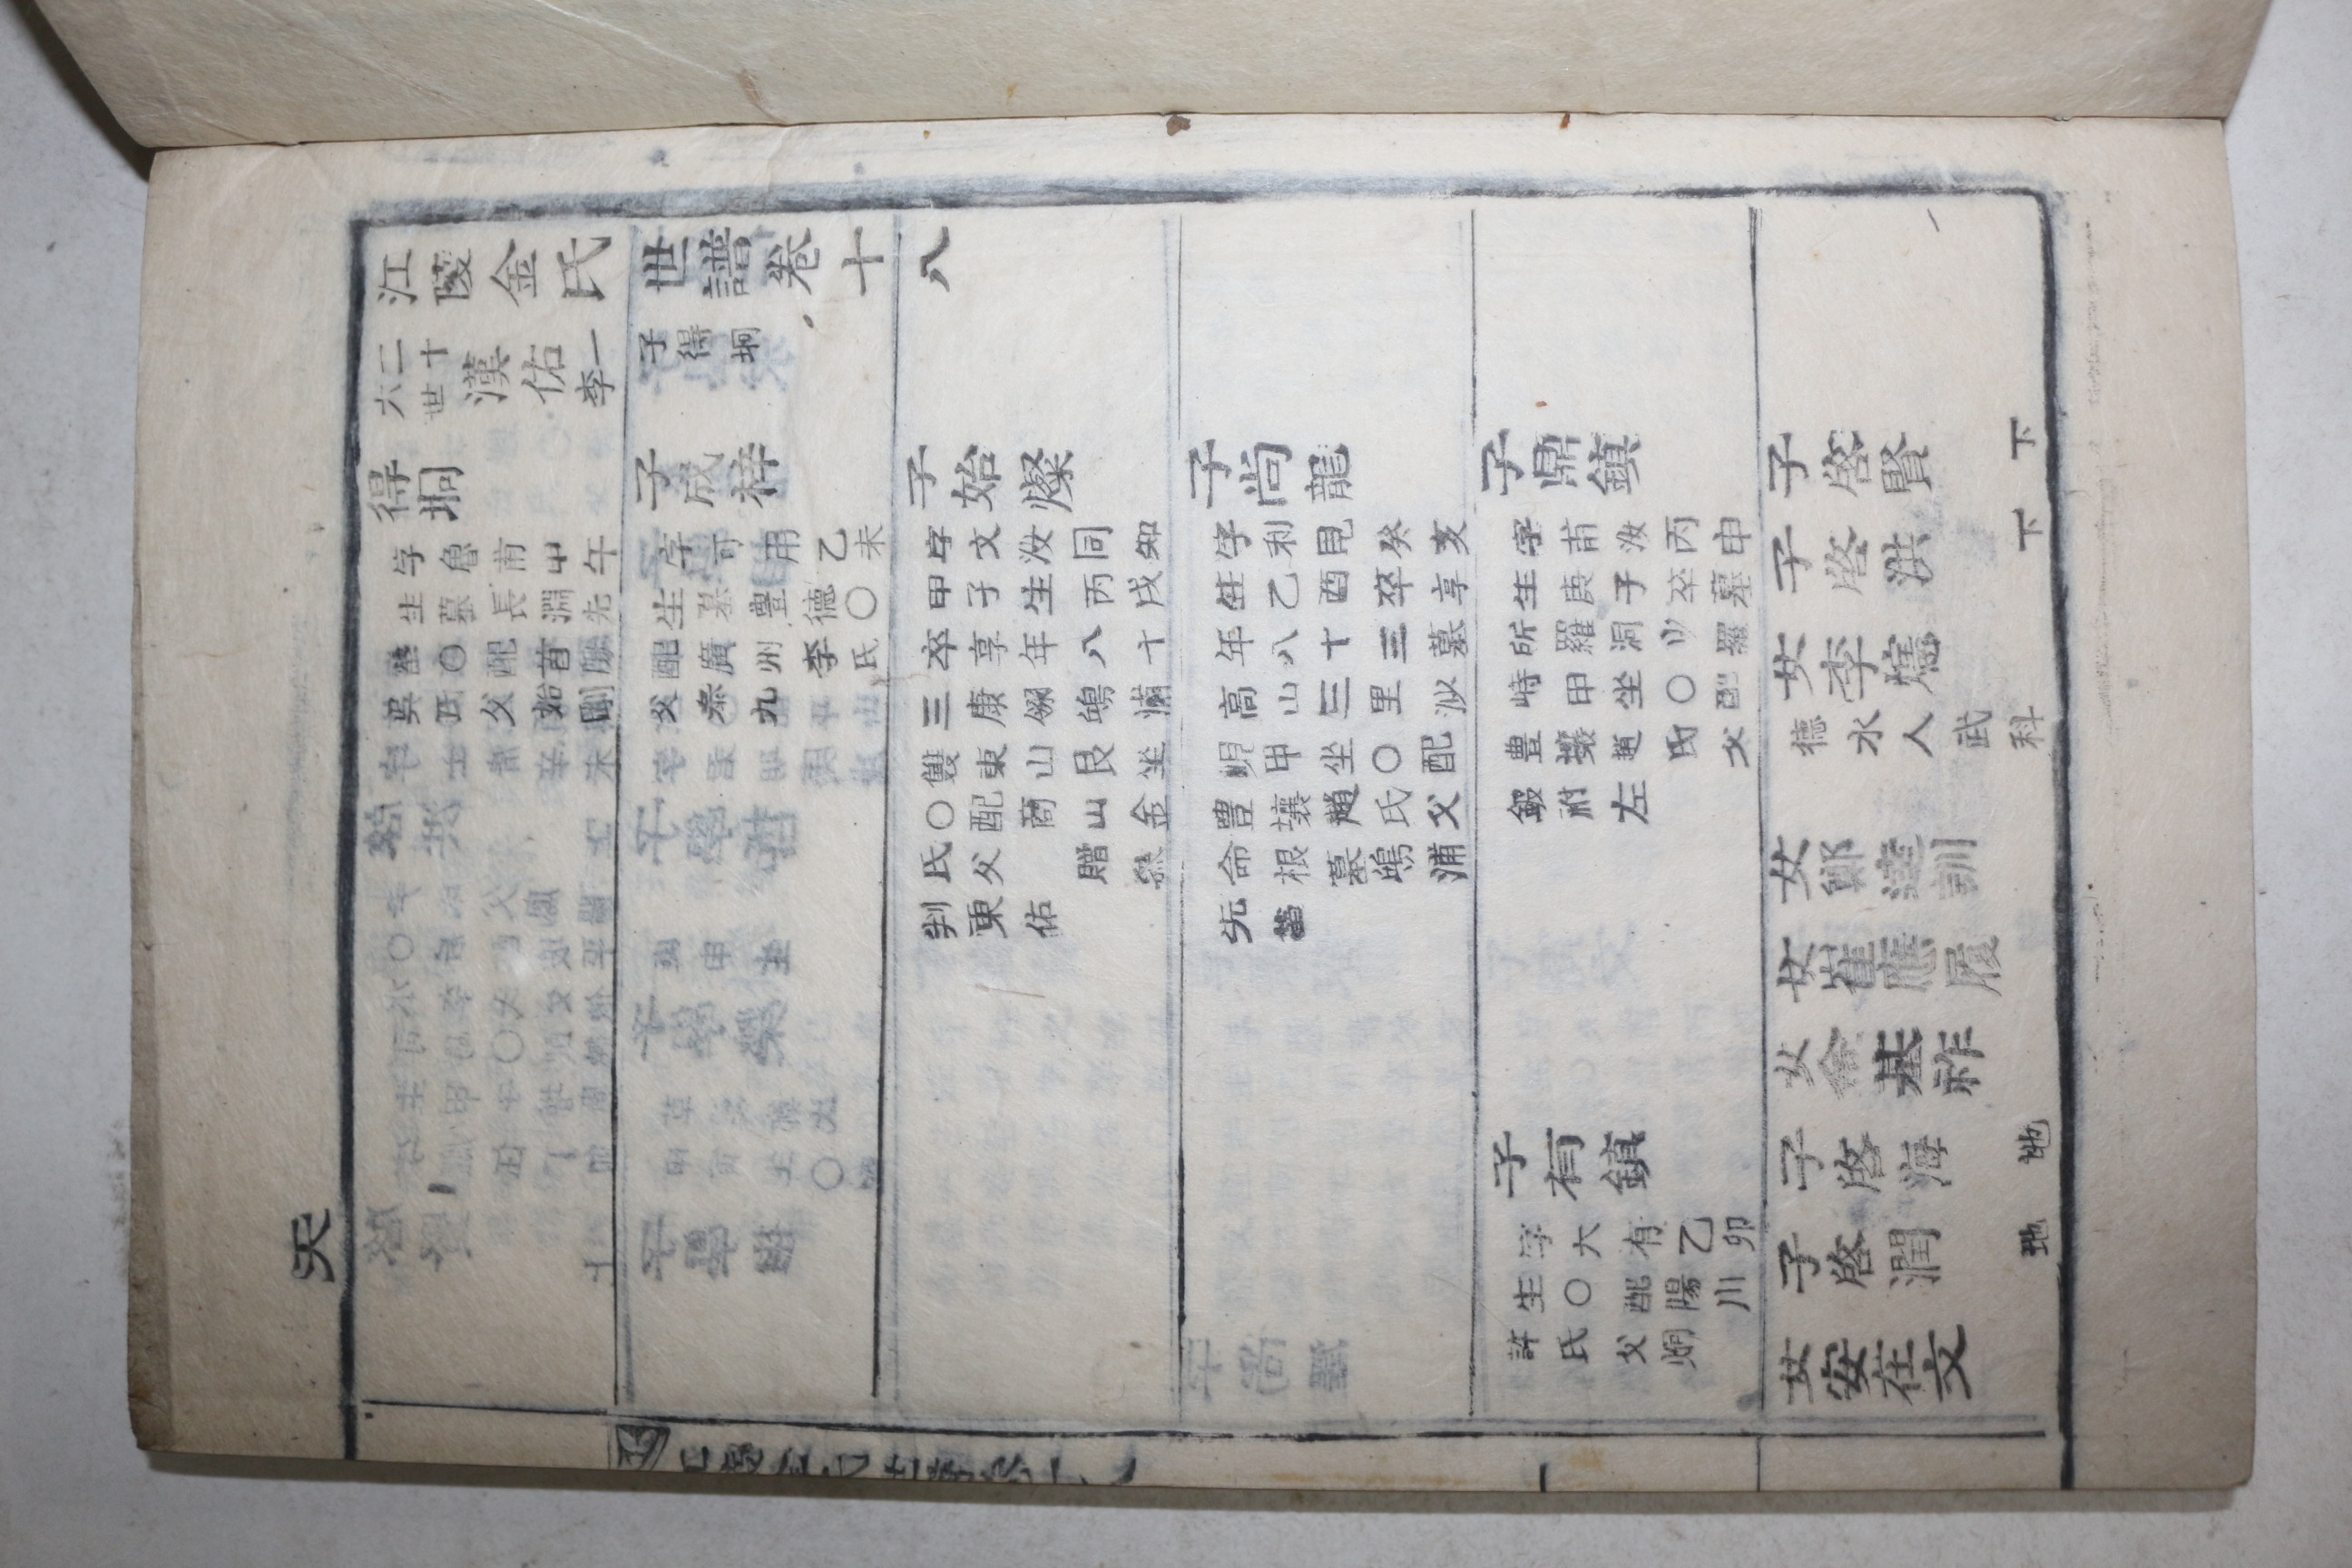 天
江陵金氏世譜卷十八
二十
六世
漢佑
一
李
子得坰
得坰
字魯甫甲午
生墓長淵先
塋〇配首陽
吳氏父始剛
子成梓
字可用乙未
生墓豊德〇
配廣州李氏
父泰九
子始燦
字文汝同知
甲子生丙戌
卒享年八十
三康翎鴆浦
雙東山艮坐
〇配商山金
氏父 贈叅
判東佑
子尚龍
字利見癸亥
生乙酉卒享
年八十三墓
高山三里沙
峴甲坐〇配
豊壤趙氏父
命根墓鴆浦
先塋
子鼎鎮
字甫汝丙申
生庚子卒墓
所羅洞少羅
峙甲坐〇配
豊壤趙氏父
鍛祔左
子有鎮
字大有乙卯
生〇配陽川
許氏父炯
子啓賢
下
子啓洪
下
女李爌
德水人武科
女鄭達訓
女崔應履
女金基祚
子啓海
地
子啓潤
地
女安在文